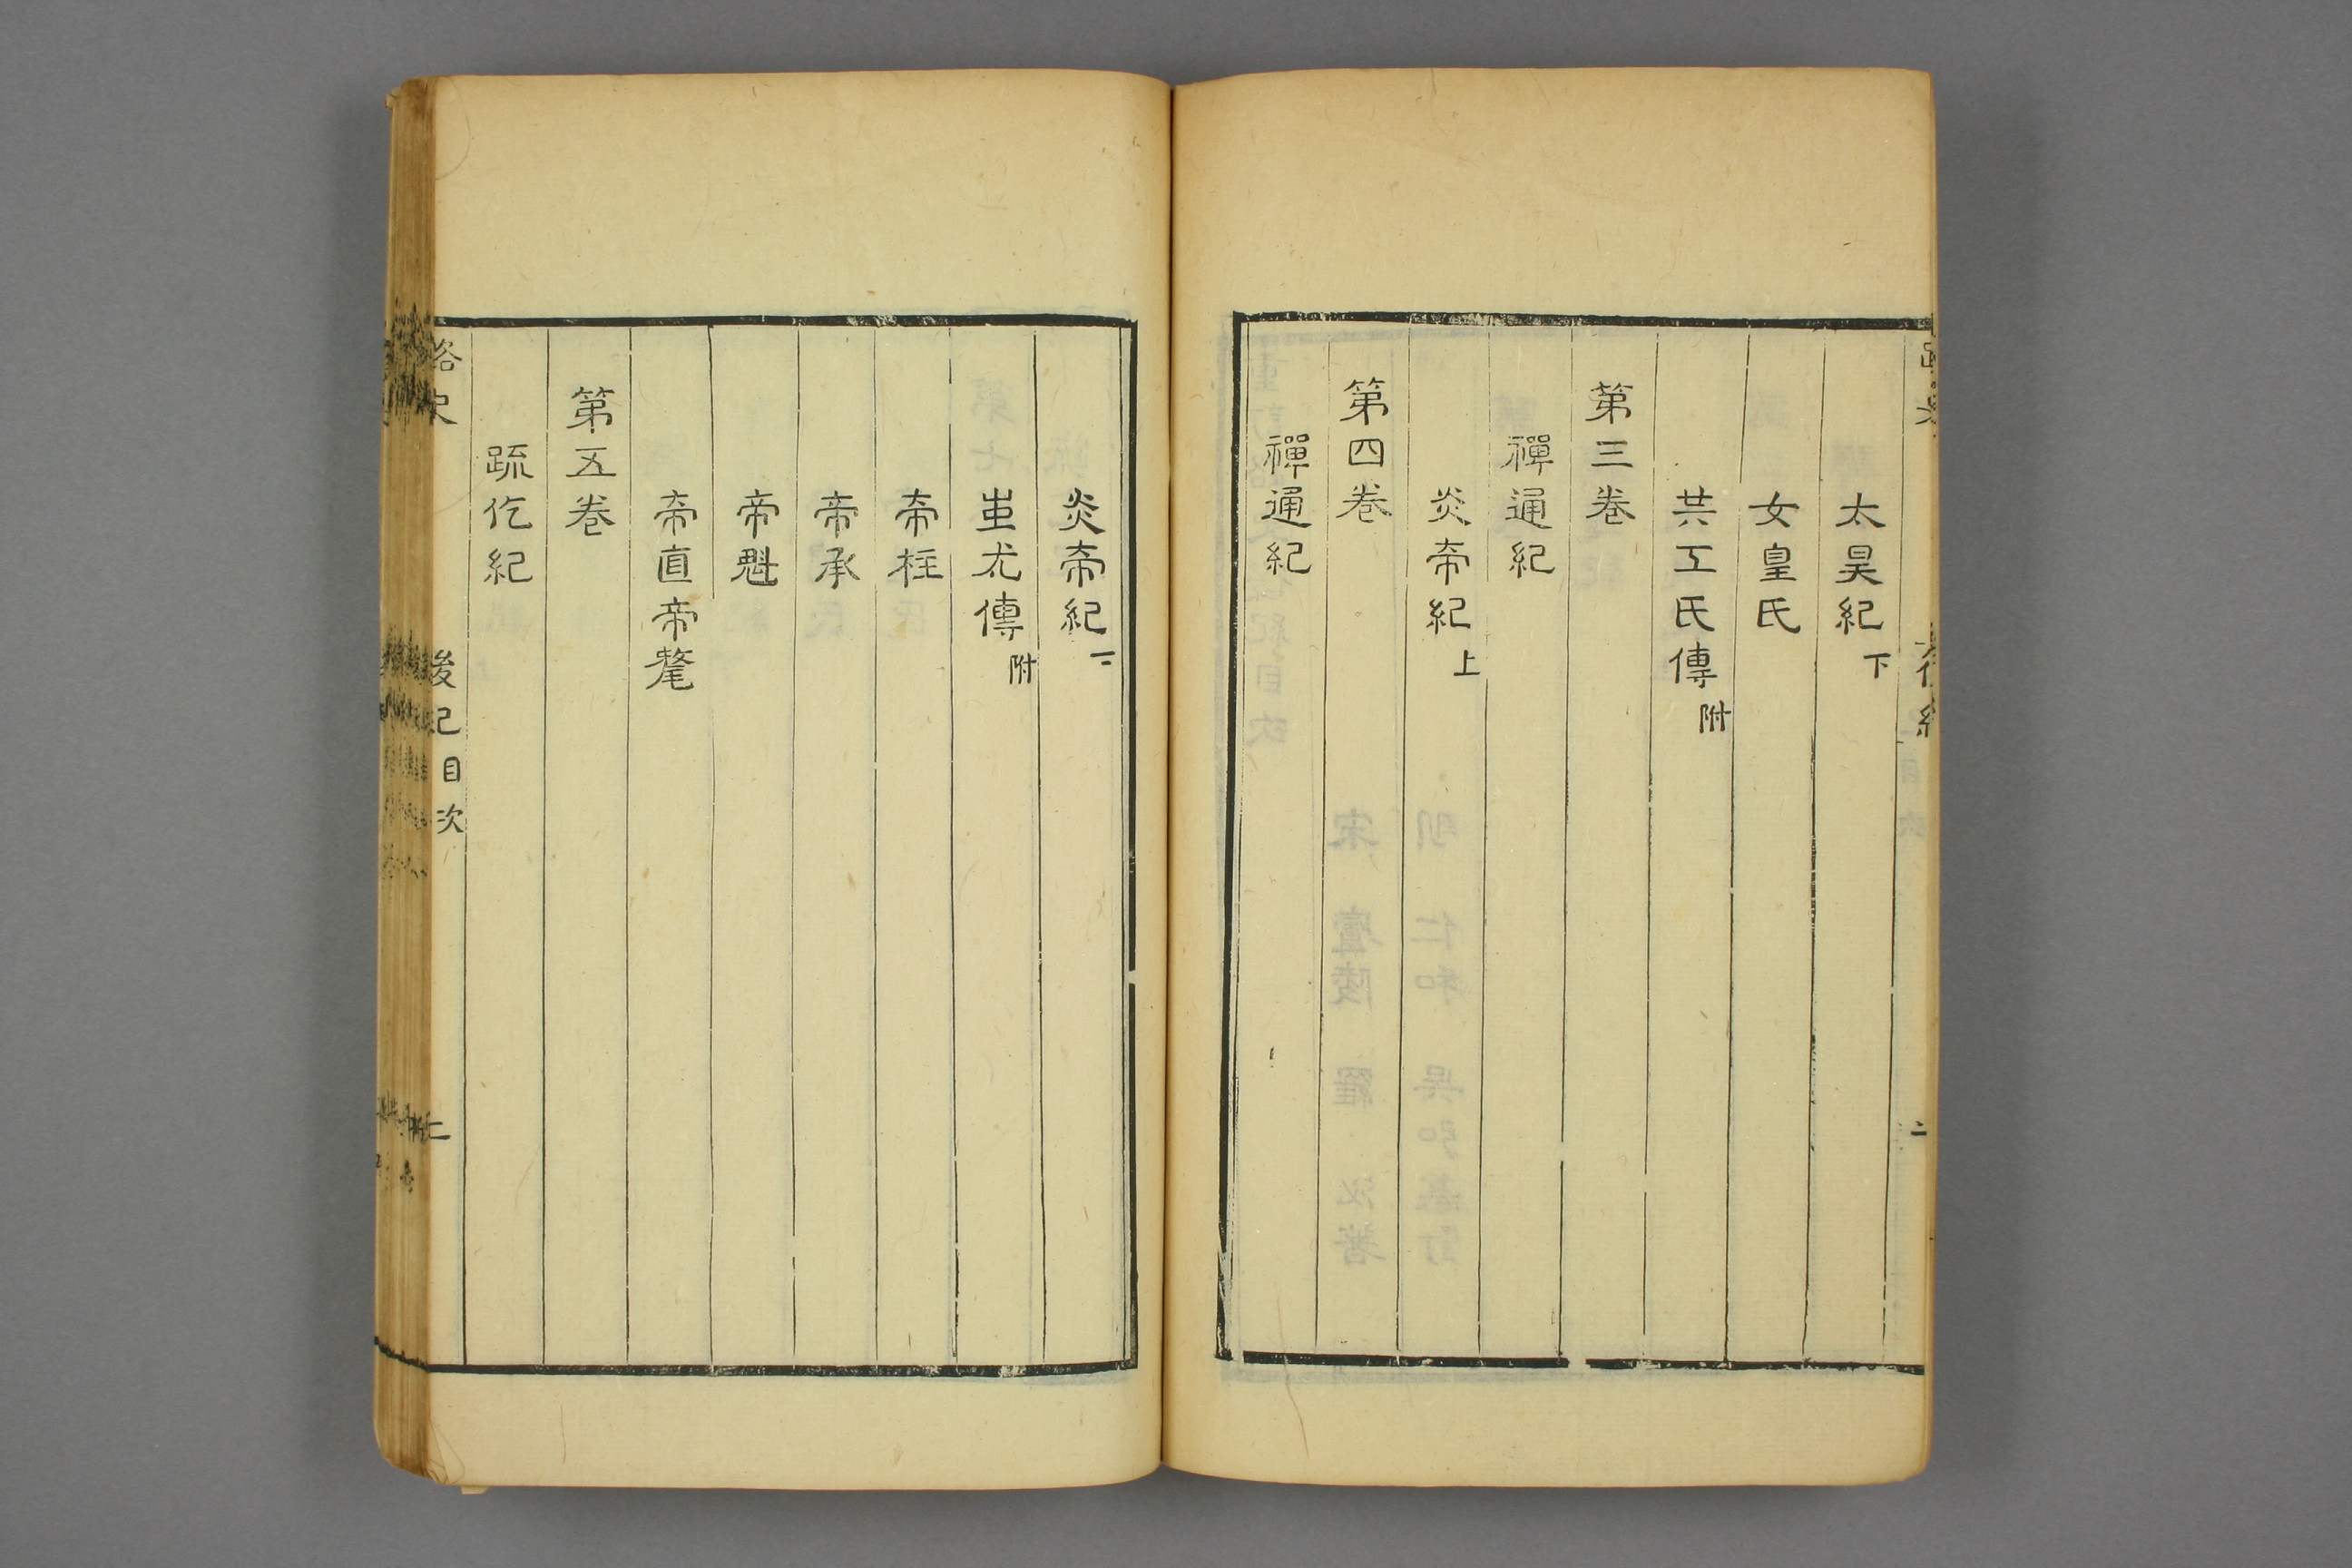 太昊紀下
女皇氏
共工氏傳附
第三卷
禪通紀
炎帝紀上
第四卷
禪通紀
炎帝紀下
蚩尤傳附
帝柱
帝承
帝魁
帝直帝氂
第五卷
疏仡紀
路史
後紀目次
二